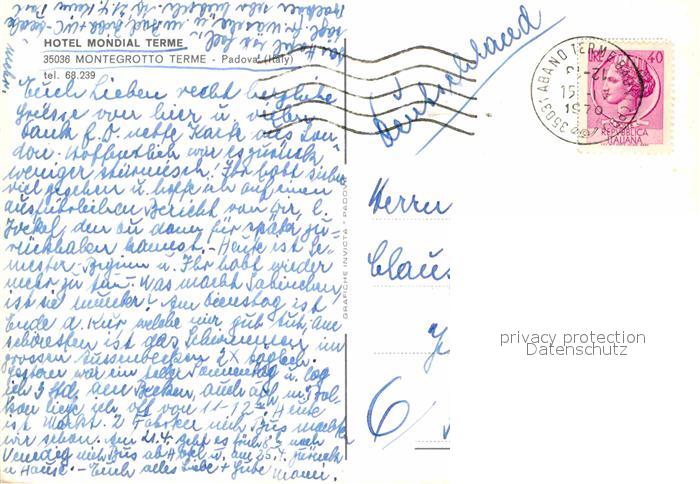 HOTEL MONDIAL TERME
35036 MONTEGROTTO TERME - Padova (Italy)
tel. 68.239
Euch Lieben recht herzliche
Grüsse von hier u. vielen
Dank f. D. nette Karte aus Lon
don. Hoffentlich war es zurück
weniger stürmisch. Ihr habt sicher
viel gesehen u. hoffe ich auf einen
ausführlichen Bericht von Dir, l.
den du dann für später zu=
rückhaben kannst. - Heute ist Se=
mester-Beginn u. Ihr habt wieder
mehr zu tun. Was macht Sabinchen
ist sie munter? Am Dienstag ist
Ende d. Kur welche mir gut tut, am
schönsten ist das Schwimmen im
grossen Aussenbecken 2 x täglich.
Gestern war ein toller Sonnentag u. lag
ich 3 Std. am Becken, auch auf m. Bal=
kon liege ich oft von 11-12h. Heute
ist Markt. 2 Fahrten mit Bus machten
wir schon. Am 21.4. geht es früh nach
Venedig mit Bus ab Hotel u. am 25.4. zurück
u. Hause. - Euch alles Liebe + Gute Mami.
GRAFICHE INVICTA - PADOVA
Deutschland
35031 ABANO TERME
1970
LIRE 40
REPUBBLICA
ITALIANA
Herrn
Claus
6/
privacy protection
Datenschutz